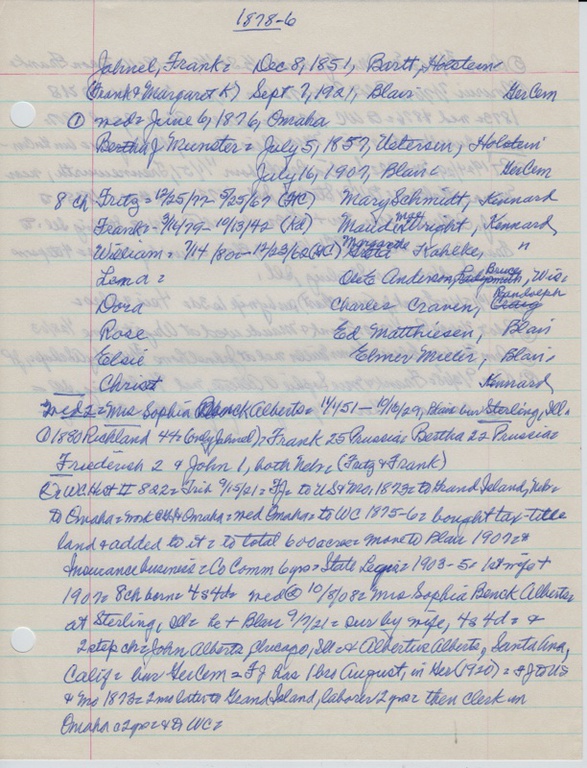 1878-6
Jahnel, Frank = Dec 8, 1851, Barlt, Holstein
(Frank & Margaret K) Sept 7, 1921, Blair GerCem
① med = June 6, 1876, Omaha
Bertha J Munster = July 5, 1857, Uetersen, Holstein
July 16, 1907, Blair GerCem
8 ch Fritz = 12/25/77 5/25/67 (HC) Mary Schmidt, Kennard
Frank = 3/14/79 - 10/13/42 (Kd) Maud Matt Wright, Kennard
William = 7/14/80 - 12/23/62 (HC) Margarete Kahlke, "
Lena = Otto Anderson, Bruce, Wis.
Dora Charles Craven, Randolph Craig
Rose Ed Matthiesen, Blair
Elsie Elmer Mieir, Blair
Christ Kennard
med 2 = Mrs Sophia Benck Alberts = 1/4/51 - 10/12/29, Blair bur Sterling, Ill
① 1880 Richland 44 = (only Jahnel) = Frank 25 Prussia, Bertha 22 Prussia =
Friederich 2 & John 1, both Nebr = (Fritz & Frank)
② WC Hist II 822 = Trib 9/15/21 = FJ to US & Mo, 1873 = to Grand Island, Nebr =
to Omaha = work CofJ Omaha = med Omaha = to WC 1875-6 = bought tax-title
land & added to it = to total 600 acres = move to Blair 1902 = &
Insurance business = Co Comm 6 yrs = State Legis = 1903-5 = 1st wife +
1907 = 8 ch born = 4s 4d = med ② 10/8/08 = Mrs Sophia Benck Alberts =
at Sterling, Ill = he + Blair 9/7/21 = sur by wife, 4s 4d = &
2 step ch = John Alberts, Chicago, Ill & Albertine Alberts, Santa Ana,
Calif = bur GerCem = FJ has 1 bro August, in Ger (1920) = FJ to US
& Mo 1873 = 2 mo later to Grand Island, laborer 2 yrs = then clerk in
Omaha c2 yrs = & to WC =